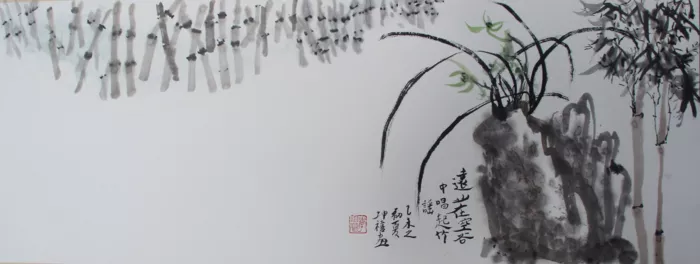 遠山在空谷
中唱起竹
謠
乙未之
初夏